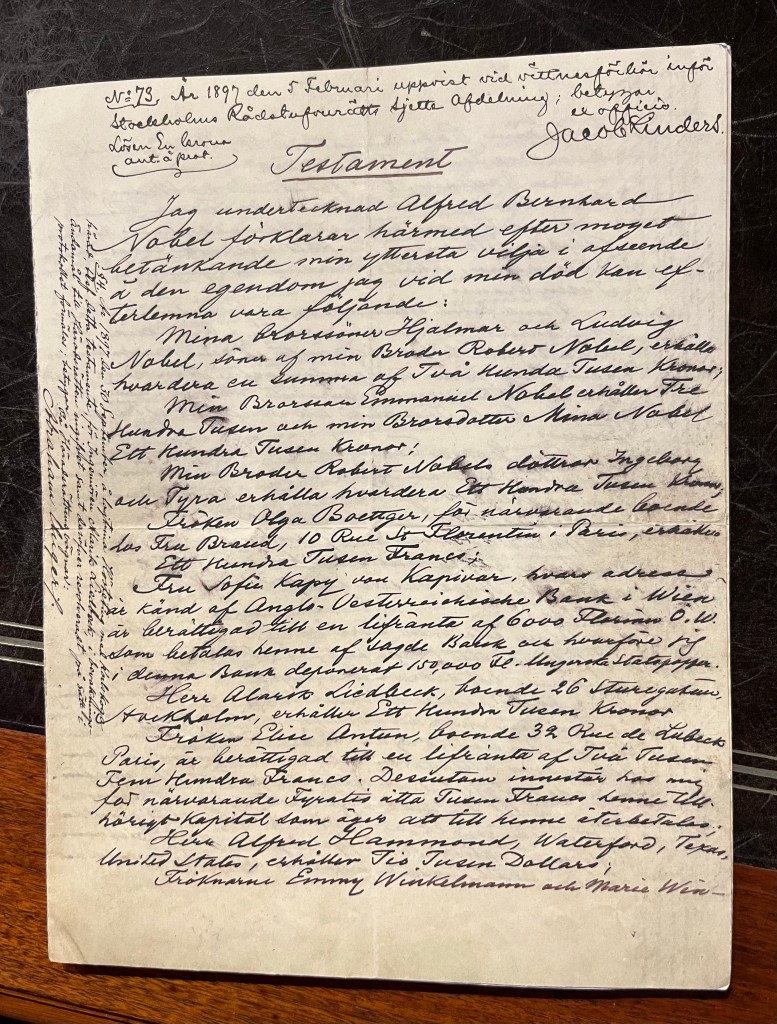 No 73. År 1897 den 5 Februari uppvist vid vittnesförhör inför
Stockholms Rådstufvurätts sjette Afdelning; betygar
ex officio.
Lösen En krona
Jacob Linders.
Testament
Jag undertecknad Alfred Bernhard
Nobel förklarar härmed efter moget
betänkande min yttersta vilja i afseende
å den egendom jag vid min död kan ef-
terlemna vara följande:
Mina brorssöner Hjalmar och Ludvig
Nobel, söner af min Broder Robert Nobel, erhålla
hvardera en summa af Två Hundra Tusen Kronor;
Min Brorsson Emmanuel Nobel erhåller Tre
Hundra Tusen och min Brorsdotter Mina Nobel
Ett Hundra Tusen Kronor;
Min Broder Robert Nobels döttrar Ingeborg
och Tyra erhålla hvardera Ett Hundra Tusen Kronor;
Fröken Olga Boettger, för närvarande boende
hos Fru Brand, 10 Rue St Florentin i Paris, erhåller
Ett Hundra Tusen Francs;
Fru Sofie Kapy von Kapivar, hvars adress
är känd af Anglo-Oesterreichische Bank i Wien
är berättigad till en lifränta af 6000 Florins Ö.W.
som betalas henne af sagde Bank och hvarföre jag
i denna Bank deponerat 150,000 Fl. Ungerska Statspapper.
Herr Alarik Liedbeck, boende 26 Sturegatan,
Stockholm, erhåller Ett Hundra Tusen Kronor
Fröken Elise Antun, boende 32 Rue de Lubeck
Paris, är berättigad till en lifränta af Två Tusen
Fem Hundra Francs. Dessutom innestår hos mig
för närvarande Fyratio åtta Tusen Francs henne till-
hörigt Kapital som äger att till henne återbetalas;
Herr Alfred Hammond, Waterford, Texas,
United States, erhåller Tio Tusen Dollars;
Fröknarne Emmy Winkelmann och Marie Win-